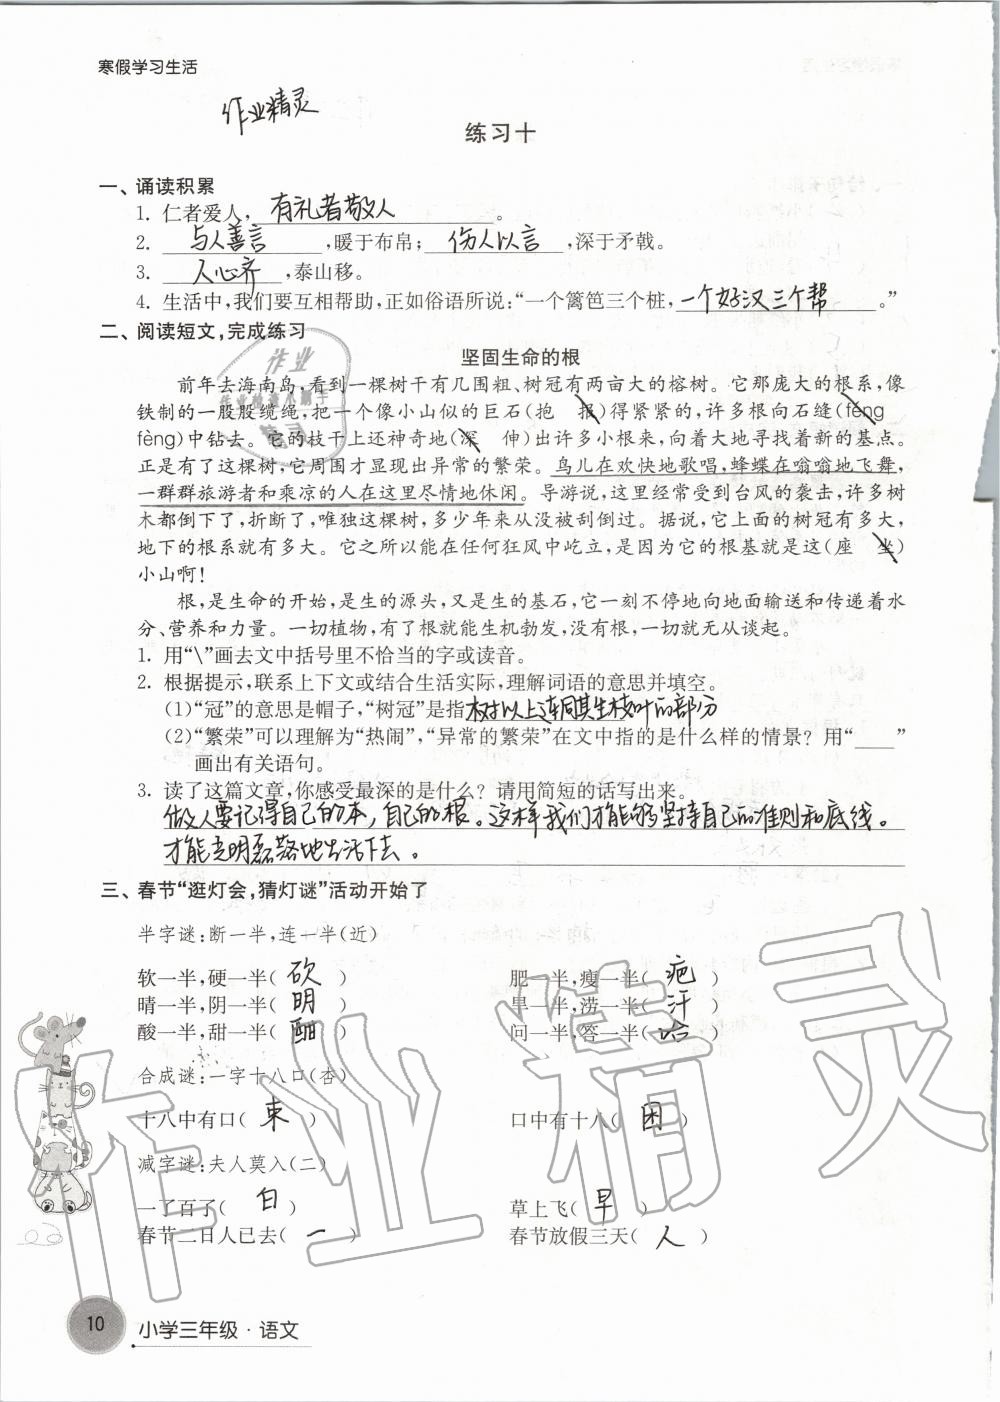 寒假学习生活
作业精灵
练习十
一、诵读积累
1. 仁者爱人，有礼者敬人。
2. 与人善言，暖于布帛；伤人以言，深于矛戟。
3. 人心齐，泰山移。
4. 生活中，我们要互相帮助，正如俗语所说：“一个篱笆三个桩，一个好汉三个帮。”
二、阅读短文，完成练习
坚固生命的根
前年去海南岛，看到一棵树干有几围粗、树冠有两亩大的榕树。它那庞大的根系，像
铁制的一股股缆绳，把一个像小山似的巨石(抱 报)得紧紧的，许多根向石缝(féng
fèng)中钻去。它的枝干上还神奇地(深 伸)出许多小根来，向着大地寻找着新的基点。
正是有了这棵树，它周围才显现出异常的繁荣。鸟儿在欢快地歌唱，蜂蝶在嗡嗡地飞舞，
一群群旅游者和乘凉的人在这里尽情地休闲。导游说，这里经常受到台风的袭击，许多树
木都倒下了，折断了，唯独这棵树，多少年来从没被刮倒过。据说，它上面的树冠有多大，
地下的根系就有多大。它之所以能在任何狂风中屹立，是因为它的根基就是这(座 坐)
小山啊！
根，是生命的开始，是生的源头，又是生的基石，它一刻不停地向地面输送和传递着水
分、营养和力量。一切植物，有了根就能生机勃发，没有根，一切就无从谈起。
1. 用“\”画去文中括号里不恰当的字或读音。
2. 根据提示，联系上下文或结合生活实际，理解词语的意思并填空。
(1)“冠”的意思是帽子，“树冠”是指树以上连同其生枝叶的部分
(2)“繁荣”可以理解为“热闹”，“异常的繁荣”在文中指的是什么样的情景？用“____”
画出有关语句。
3. 读了这篇文章，你感受最深的是什么？请用简短的话写出来。
做人要记得自己的本，自己的根。这样我们才能够坚持自己的准则和底线。
才能光明磊落地生活下去。
三、春节“逛灯会，猜灯谜”活动开始了
半字谜：断一半，连一半(近)
软一半，硬一半(砍) 肥一半，瘦一半(疤)
晴一半，阴一半(明) 旱一半，涝一半(汗)
酸一半，甜一半(酣) 问一半，答一半(哈)
合成谜：一字十八口(杏)
十八中有口(束) 口中有十八(困)
减字谜：夫人莫入(二)
一了百了(白) 草上飞(早)
春节二日人已去(一) 春节放假三天(人)
10
小学三年级·语文
作业精灵